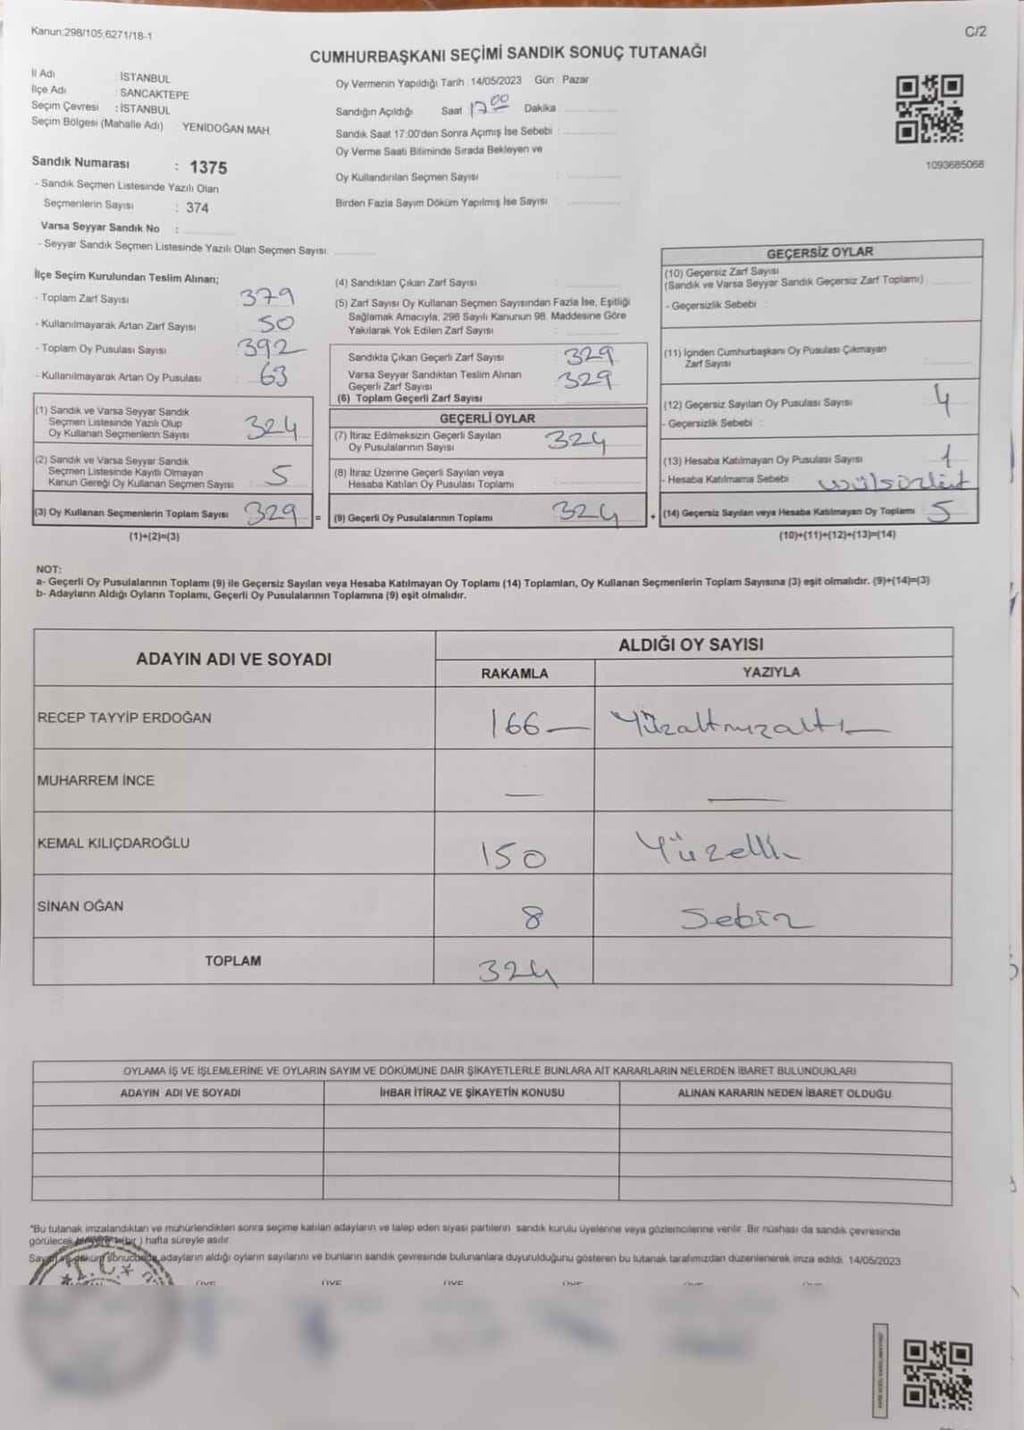 Kanun:298/105;6271/18-1
C/2
CUMHURBAŞKANI SEÇİMİ SANDIK SONUÇ TUTANAĞI
İl Adı : İSTANBUL
İlçe Adı : SANCAKTEPE
Seçim Çevresi : İSTANBUL
Seçim Bölgesi (Mahalle Adı) YENİDOĞAN MAH.
Sandık Numarası : 1375
- Sandık Seçmen Listesinde Yazılı Olan
Seçmenlerin Sayısı : 374
Varsa Seyyar Sandık No :
- Seyyar Sandık Seçmen Listesinde Yazılı Olan Seçmen Sayısı:
Oy Vermenin Yapıldığı Tarih :14/05/2023 Gün : Pazar
Sandığın Açıldığı Saat 17 00 Dakika
Sandık Saat 17:00'den Sonra Açımış İse Sebebi :
Oy Verme Saati Bitiminde Sırada Bekleyen ve
Oy Kullandırılan Seçmen Sayısı :
Birden Fazla Sayım Döküm Yapılmış İse Sayısı :
1093685068
İlçe Seçim Kurulundan Teslim Alınan;
- Toplam Zarf Sayısı : 379
- Kullanılmayarak Artan Zarf Sayısı : 50
- Toplam Oy Pusulası Sayısı : 392
- Kullanılmayarak Artan Oy Pusulası : 63
(1) Sandık ve Varsa Seyyar Sandık
Seçmen Listesinde Yazılı Olup
Oy Kullanan Seçmenlerin Sayısı 324
(2) Sandık ve Varsa Seyyar Sandık
Seçmen Listesinde Kayıtlı Olmayan
Kanun Gereği Oy Kullanan Seçmen Sayısı 5
(3) Oy Kullanan Seçmenlerin Toplam Sayısı 329 =
(1)+(2)=(3)
(4) Sandıktan Çıkan Zarf Sayısı :
(5) Zarf Sayısı Oy Kullanan Seçmen Sayısından Fazla İse, Eşitliği
Sağlamak Amacıyla, 298 Sayılı Kanunun 98. Maddesine Göre
Yakılarak Yok Edilen Zarf Sayısı :
Sandıkta Çıkan Geçerli Zarf Sayısı : 329
Varsa Seyyar Sandıktan Teslim Alınan
Geçerli Zarf Sayısı : 329
(6) Toplam Geçerli Zarf Sayısı :
GEÇERLİ OYLAR
(7) İtiraz Edilmeksizin Geçerli Sayılan
Oy Pusulalarının Sayısı 324
(8) İtiraz Üzerine Geçerli Sayılan veya
Hesaba Katılan Oy Pusulası Toplamı
(9) Geçerli Oy Pusulalarının Toplamı 324 +
GEÇERSİZ OYLAR
(10) Geçersiz Zarf Sayısı
(Sandık ve Varsa Seyyar Sandık Geçersiz Zarf Toplamı) :
- Geçersizlik Sebebi :
(11) İçinden Cumhurbaşkanı Oy Pusulası Çıkmayan
Zarf Sayısı :
(12) Geçersiz Sayılan Oy Pusulası Sayısı : 4
- Geçersizlik Sebebi :
(13) Hesaba Katılmayan Oy Pusulası Sayısı : 1
- Hesaba Katılmama Sebebi :
(14) Geçersiz Sayılan veya Hesaba Katılmayan Oy Toplamı 5
(10)+(11)+(12)+(13)=(14)
NOT:
a- Geçerli Oy Pusulalarının Toplamı (9) ile Geçersiz Sayılan veya Hesaba Katılmayan Oy Toplamı (14) Toplamları, Oy Kullanan Seçmenlerin Toplam Sayısına (3) eşit olmalıdır. (9)+(14)=(3)
b- Adayların Aldığı Oyların Toplamı, Geçerli Oy Pusulalarının Toplamına (9) eşit olmalıdır.
ADAYIN ADI VE SOYADI
ALDIĞI OY SAYISI
RAKAMLA YAZIYLA
RECEP TAYYİP ERDOĞAN 166 Yüzaltmışaltı
MUHARREM İNCE — —
KEMAL KILIÇDAROĞLU 150 Yüzelli
SİNAN OĞAN 8 Sebiz
TOPLAM 324
OYLAMA İŞ VE İŞLEMLERİNE VE OYLARIN SAYIM VE DÖKÜMÜNE DAİR ŞİKAYETLERLE BUNLARA AİT KARARLARIN NELERDEN İBARET BULUNDUKLARI
ADAYIN ADI VE SOYADI İHBAR İTİRAZ VE ŞİKAYETİN KONUSU ALINAN KARARIN NEDEN İBARET OLDUĞU
*Bu tutanak imzalandıktan ve mühürlendikten sonra seçime katılan adayların ve talep eden siyasi partilerin sandık kurulu üyelerine veya gözlemcilerine verilir. Bir nüshası da sandık çevresinde
görülecek bir yere (bir) hafta süreyle asılır.
Sayım ve döküm sonucunda adayların aldığı oyların sayılarını ve bunların sandık çevresinde bulunanlara duyurulduğunu gösteren bu tutanak tarafımızdan düzenlenerek imza edildi. 14/05/2023
T.C.